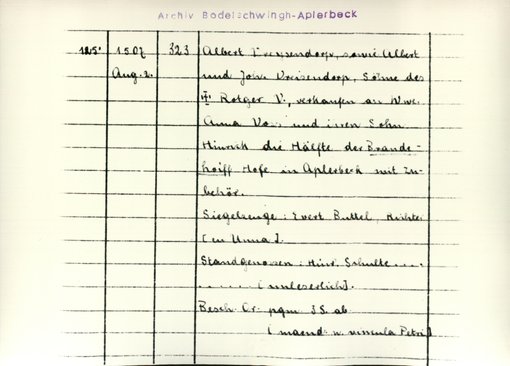 Archiv Bodelschwingh-Aplerbeck
125. 1507 323 Albert Vreysendorp, sowie Albert
Aug. 2. und Johan Vreisendorp, Söhne des
Rotger V., verkaufen an Wwe.
Anna Voss und iren Sohn
Hinrich die Hälfte der Brande-
hoiff Hofe in Aplerbeck mit Zu-
behör.
Siegelzeuge: Evert Buttel, Richter
[en Unna].
Standgenossen: Hinr. Schulte ....
...... [unleserlich].
Besch. Or. pgm 3 S. ab
[maend. n. vincula Petri]